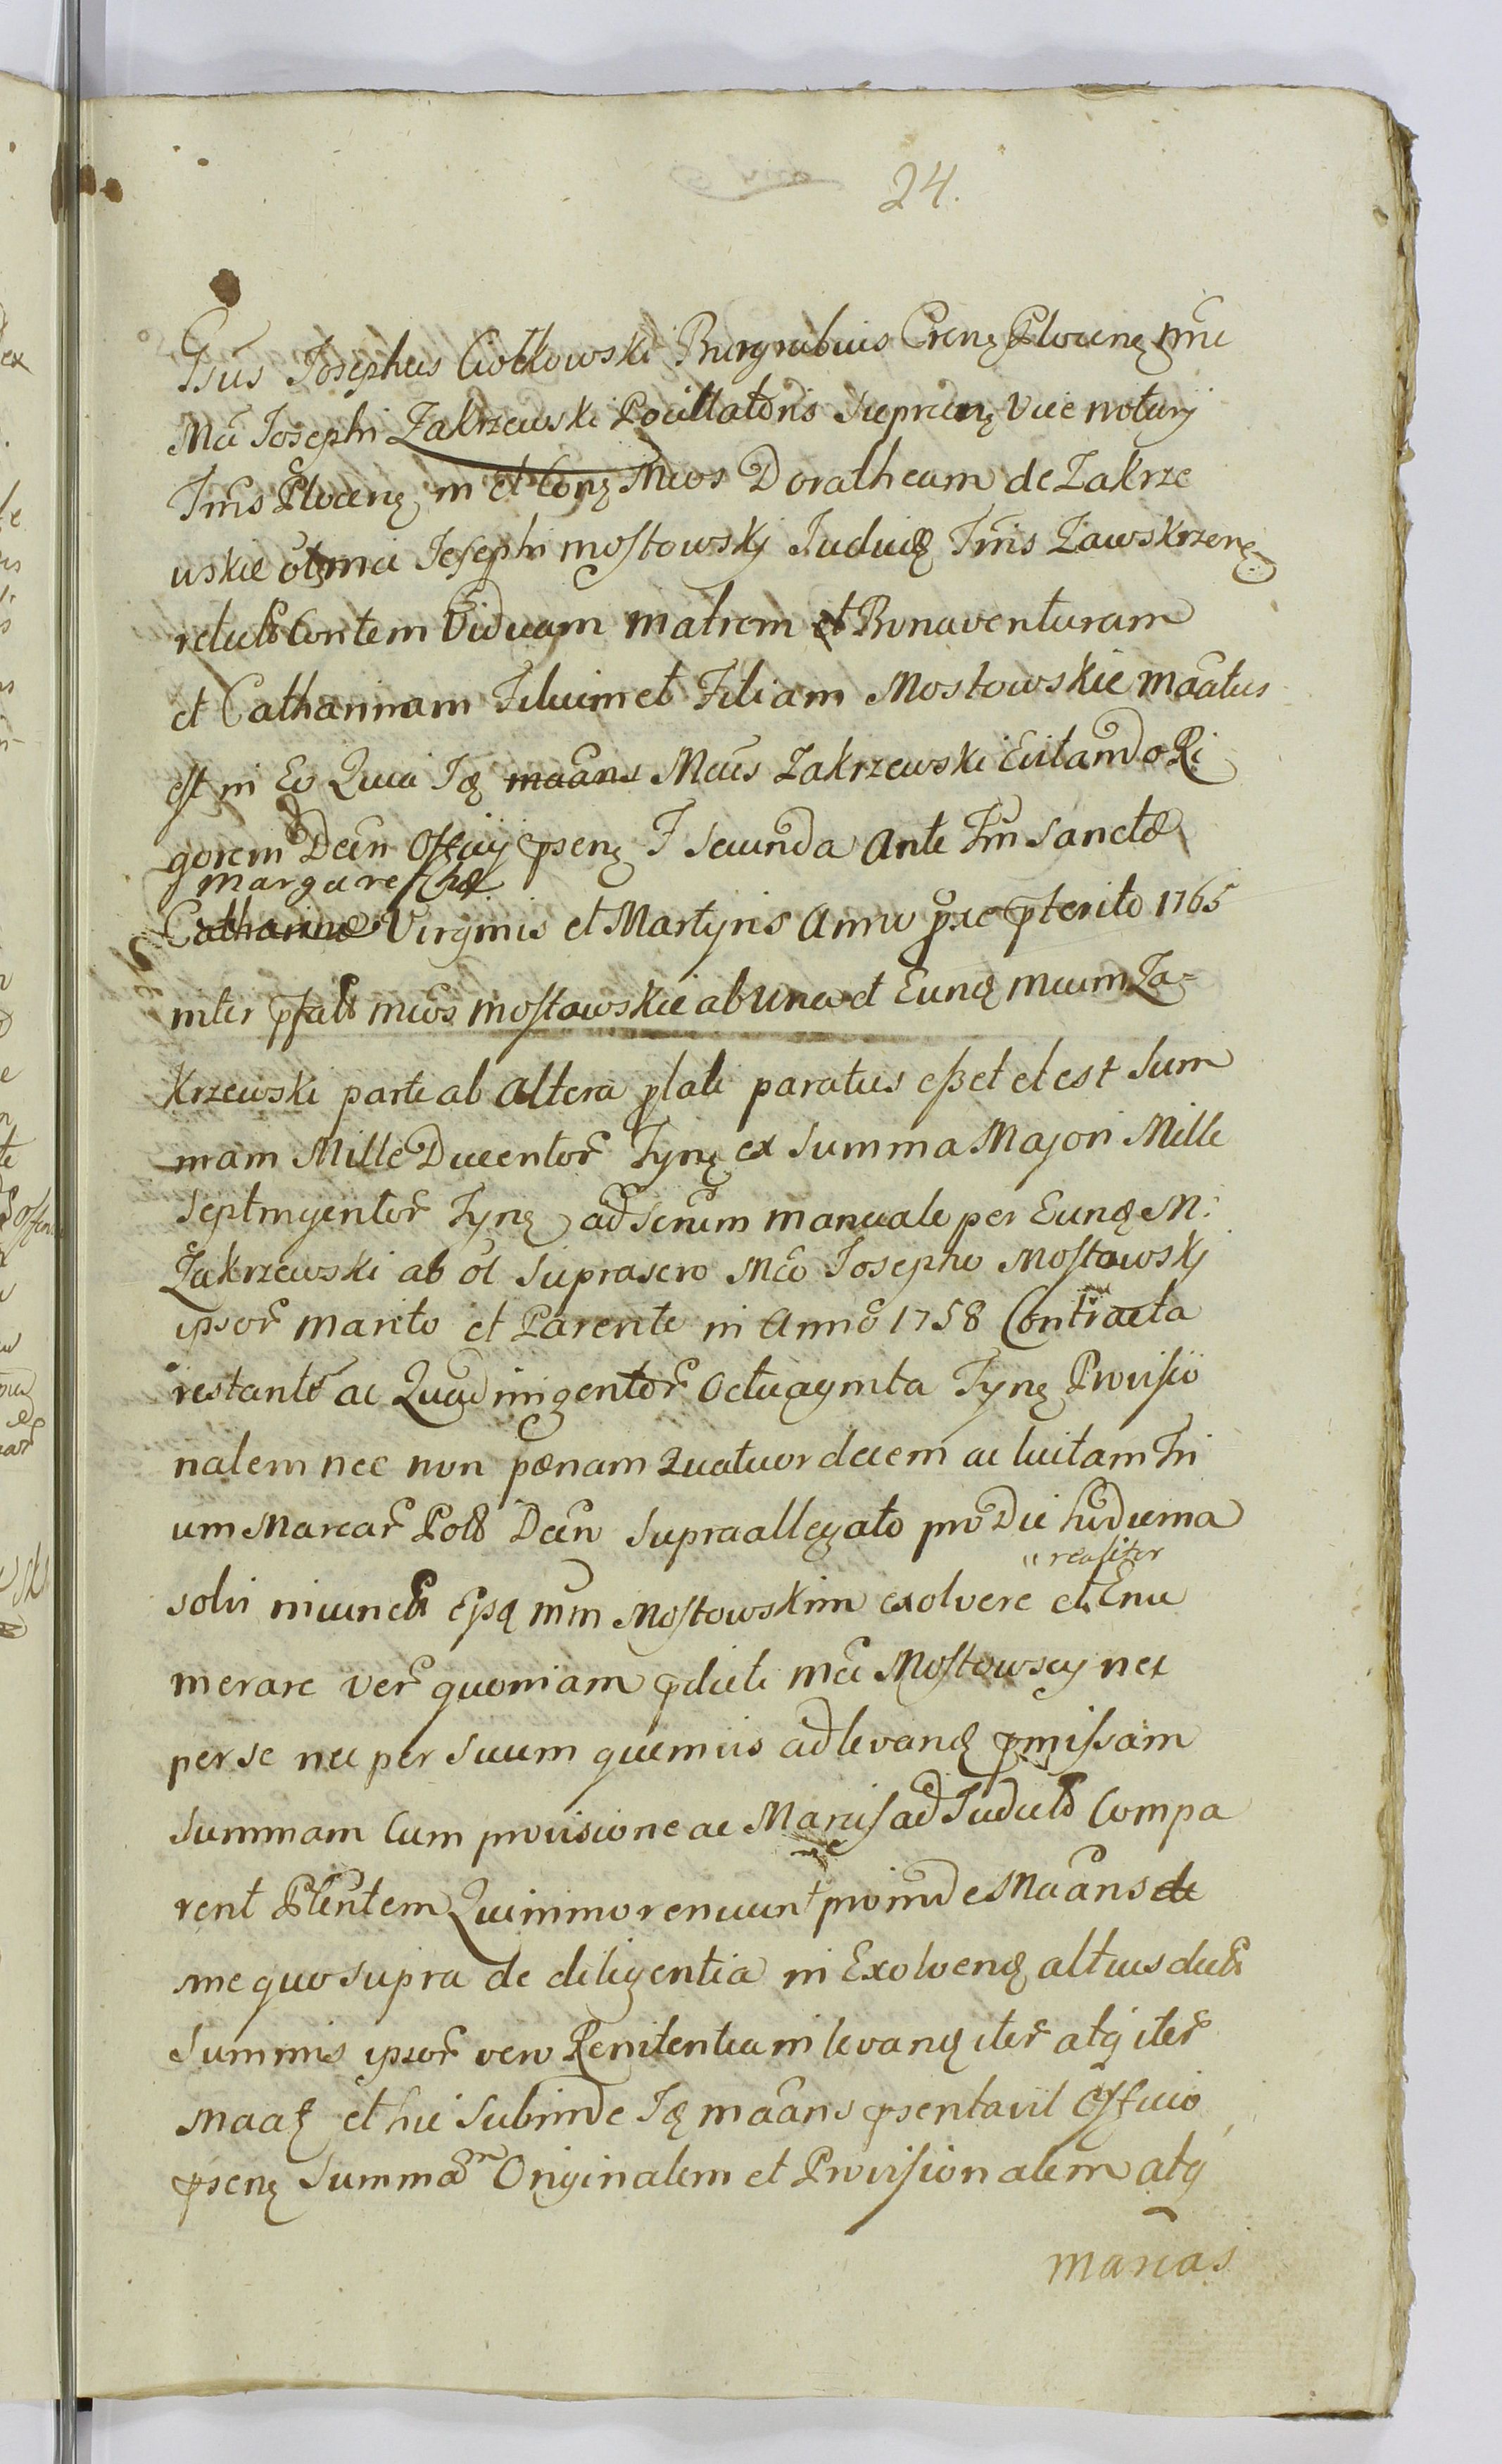 24.
Gsus Josephus Ciołkowski Burgrabius Crenς Plocenς nne
Mci Josephi Zakrzewski Pocillatoris Sieprcenς Vice notarij
Tris Plocenς in et Conς Mcos Dorotheam de Zakrze
wskie olς mci Josephi Mostowskj Judicς Tris Zawskrzenς
relict Contem Viduam matrem et Bonaventuram
et Catharinam Filium et Filiam Mostowskie maatus
est in Eo Quia Iς Mcus Zakrzewski Evitando Ri
gorem Decr Officij pseñς F Secunda Ante Fm Sanctæ
Margarethæ
Virginis et Martyris Anno pxe pterito 1765
inter pfat mcos Mostowskie ab una et Eunς mcum Za=
krzewski parte ab altera plati paratus eßet et est Sum
mam Mille Ducentor Tynς ex Summa Majori Mille
Septingentor Tynς ad Scrum manuale per Eunς M:
Zakrzewski ab ol suprascro Mco Josepho Mostowskj
ipsor marito et Parente in Anno 1758 Contracta
restante ac Quadringentor Octuaginta Tynς Provisio
nalem nec non pænam Quatuordecem ac luitam Tri
um Marcar Pol Decro supraallegato pro Die hodierna
solvi iniunct Epς mm Mostowskim exolvere et realiter Enu
merare Ver quoniam pdicti mci Mostowscy nec
per se nec per suum quemvis ad levanς pmissam
Summam Cum provisione ac Marcis ad Judict Compa
rent Ptentem Quinimo renuunt proinde Maans
me quo supra de diligentia in Exolvenς altius dict
Summis ipsor vero Renitentia in levanς iter atqς iter
maatς et hic Subinde Iς maans psentavit Officio
psenς Summam Originalem et Provisionalem atqς
marcas